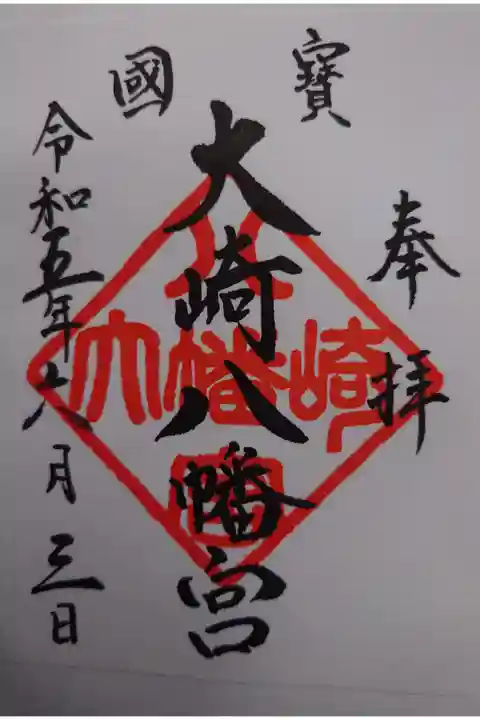 國寶
奉拝
大崎八幡宮
令和五年六月三日
八
大幡崎
宮